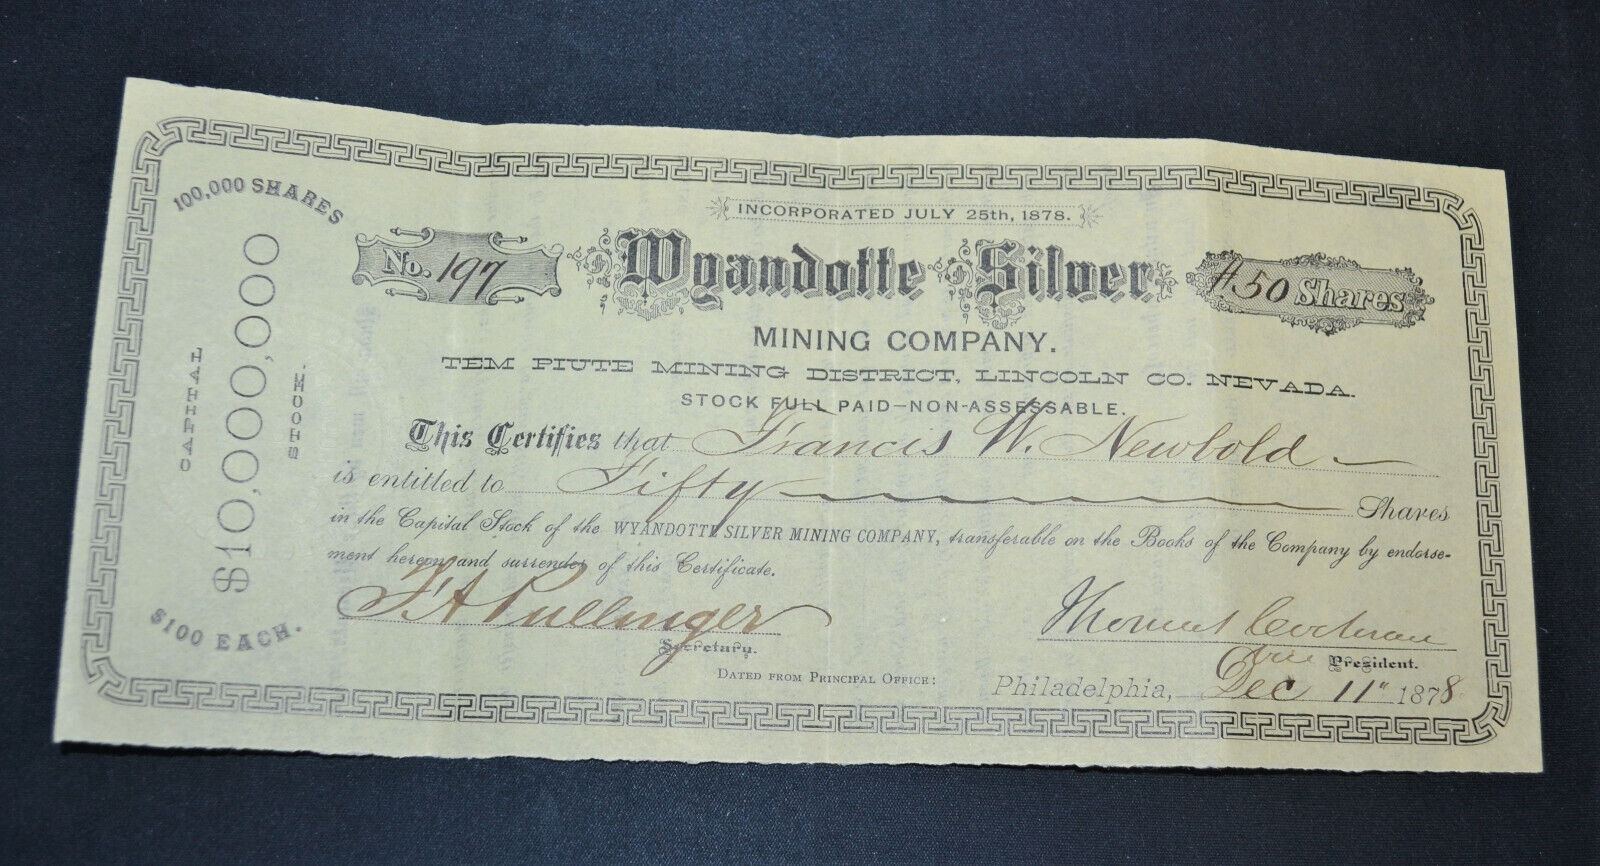 INCORPORATED JULY 25th, 1878.
100,000 SHARES
CAPITAL
$10,000,000
STOCK.
$100 EACH.
No. 197
Wyandotte Silver
50 Shares
MINING COMPANY.
TEM PIUTE MINING DISTRICT, LINCOLN CO. NEVADA.
STOCK FULL PAID-NON-ASSESSABLE.
This Certifies that Francis W. Newbold
is entitled to Fifty Shares
in the Capital Stock of the WYANDOTTE SILVER MINING COMPANY, transferable on the Books of the Company by endorse-
ment hereon and surrender of this Certificate.
F A Pullinger
Cochran
Secretary.
President.
DATED FROM PRINCIPAL OFFICE:
Philadelphia, Dec 11" 1878